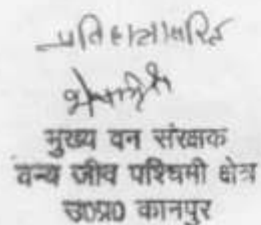 प्रतिहस्ताक्षरित
मुख्य वन संरक्षक
वन्य जीव पश्चिमी क्षेत्र
उ०प्र० कानपुर